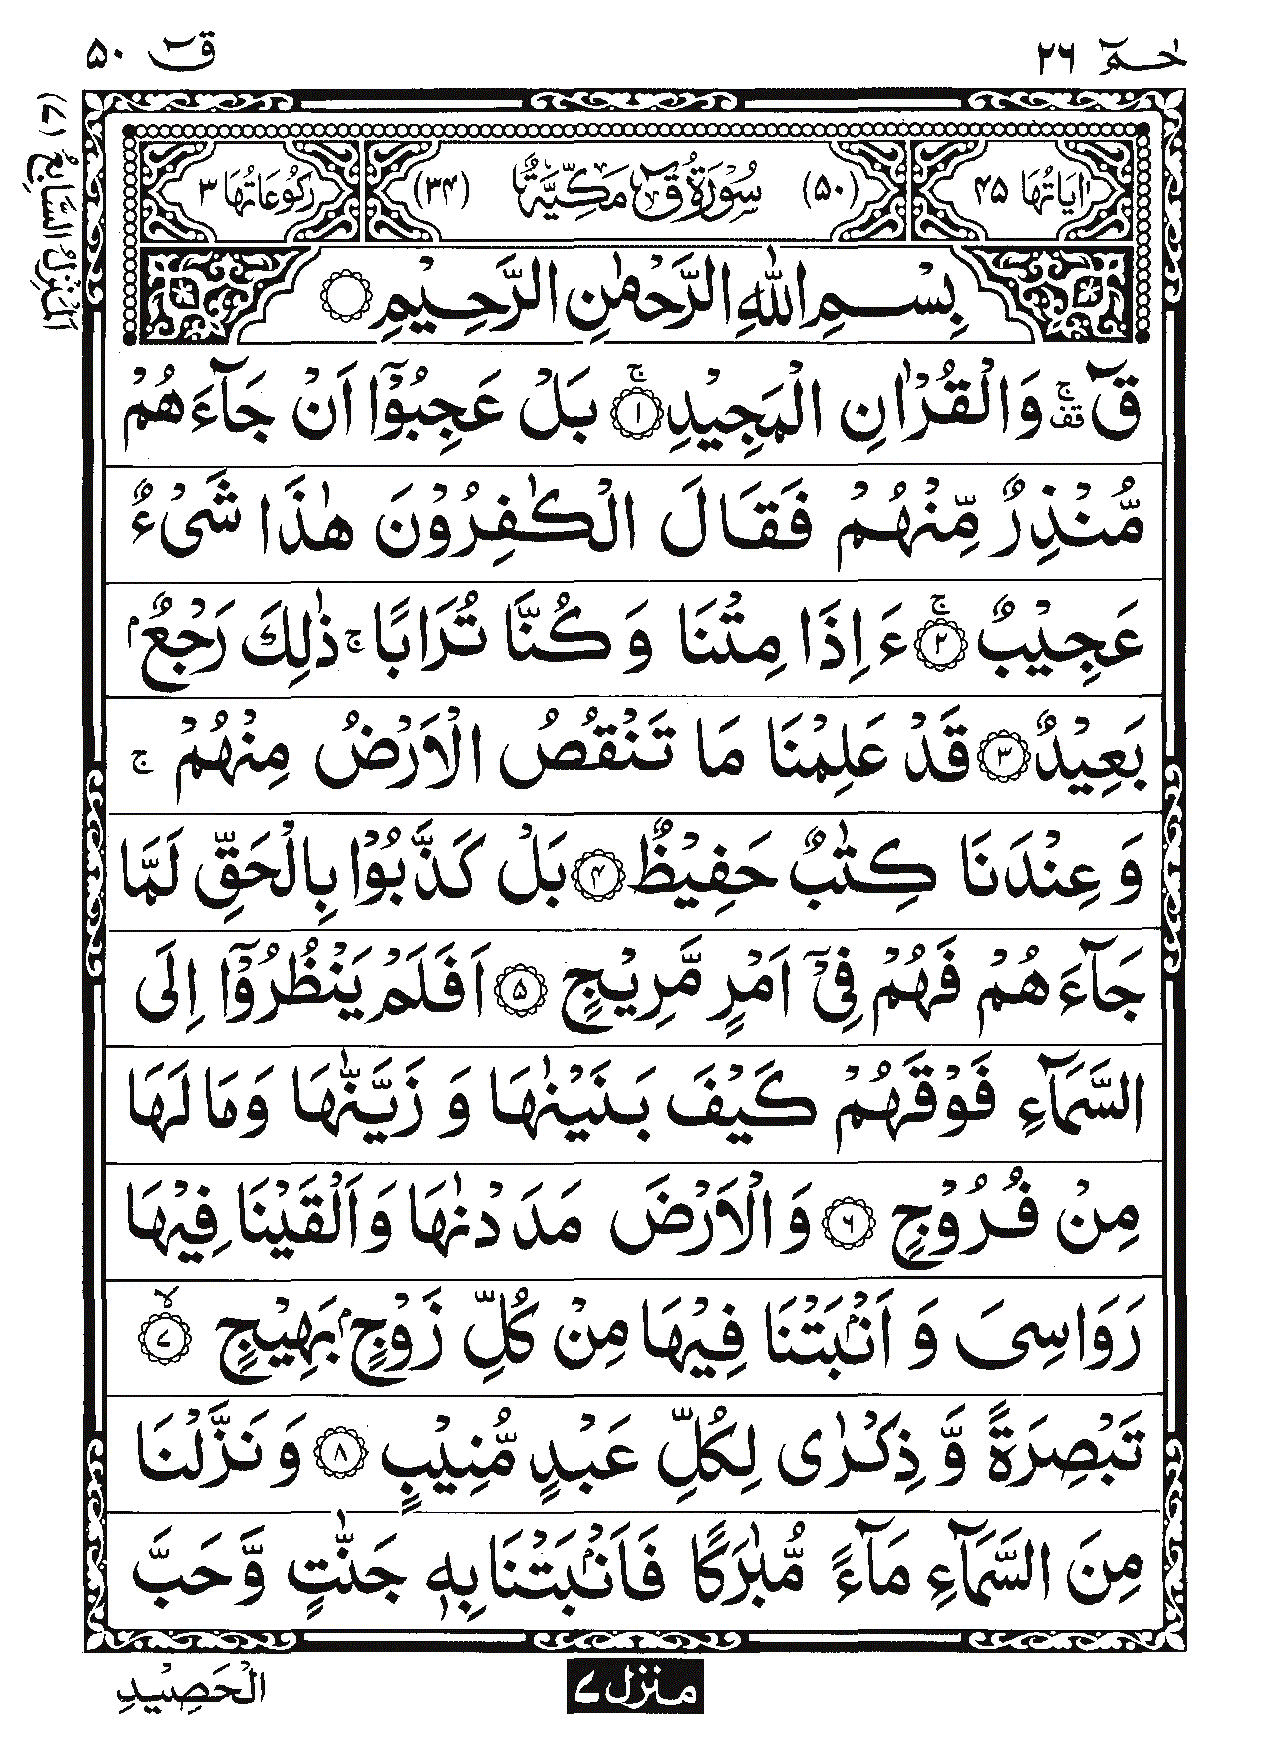 حٰمٓ ٢٦
قٓ ٥٠
اَلْمَنْزِلُ السَّابِعُ (٧)
اٰيَاتُهَا ٤٥
(٥٠) سُوْرَةُ قٓ مَكِّيَّةٌ (٣٤)
رُكُوْعَاتُهَا ٣
بِسْمِ اللّٰهِ الرَّحْمٰنِ الرَّحِيْمِ ۝
قٓ ۚ قف وَالْقُرْاٰنِ الْمَجِيْدِ ۚ ﴿١﴾ بَلْ عَجِبُوْۤا اَنْ جَآءَهُمْ
مُّنْذِرٌ مِّنْهُمْ فَقَالَ الْكٰفِرُوْنَ هٰذَا شَیْءٌ
عَجِيْبٌ ۚ ﴿٢﴾ ءَ اِذَا مِتْنَا وَ كُنَّا تُرَابًا ۚ ذٰلِكَ رَجْعٌۢ
بَعِيْدٌ ﴿٣﴾ قَدْ عَلِمْنَا مَا تَنْقُصُ الْاَرْضُ مِنْهُمْ ۚ
وَ عِنْدَنَا كِتٰبٌ حَفِيْظٌ ﴿٤﴾ بَلْ كَذَّبُوْا بِالْحَقِّ لَمَّا
جَآءَهُمْ فَهُمْ فِیْۤ اَمْرٍ مَّرِيْجٍ ﴿٥﴾ اَفَلَمْ يَنْظُرُوْۤا اِلَى
السَّمَآءِ فَوْقَهُمْ كَيْفَ بَنَيْنٰهَا وَ زَيَّنّٰهَا وَمَا لَهَا
مِنْ فُرُوْجٍ ﴿٦﴾ وَالْاَرْضَ مَدَدْنٰهَا وَاَلْقَيْنَا فِيْهَا
رَوَاسِیَ وَ اَنْۢبَتْنَا فِيْهَا مِنْ كُلِّ زَوْجٍۭ بَهِيْجٍ ۙ ﴿٧﴾
تَبْصِرَةً وَّ ذِكْرٰى لِكُلِّ عَبْدٍ مُّنِيْبٍ ﴿٨﴾ وَ نَزَّلْنَا
مِنَ السَّمَآءِ مَآءً مُّبٰرَكًا فَاَنْۢبَتْنَا بِهٖ جَنّٰتٍ وَّحَبَّ
منزل ٧
الْحَصِيْدِ